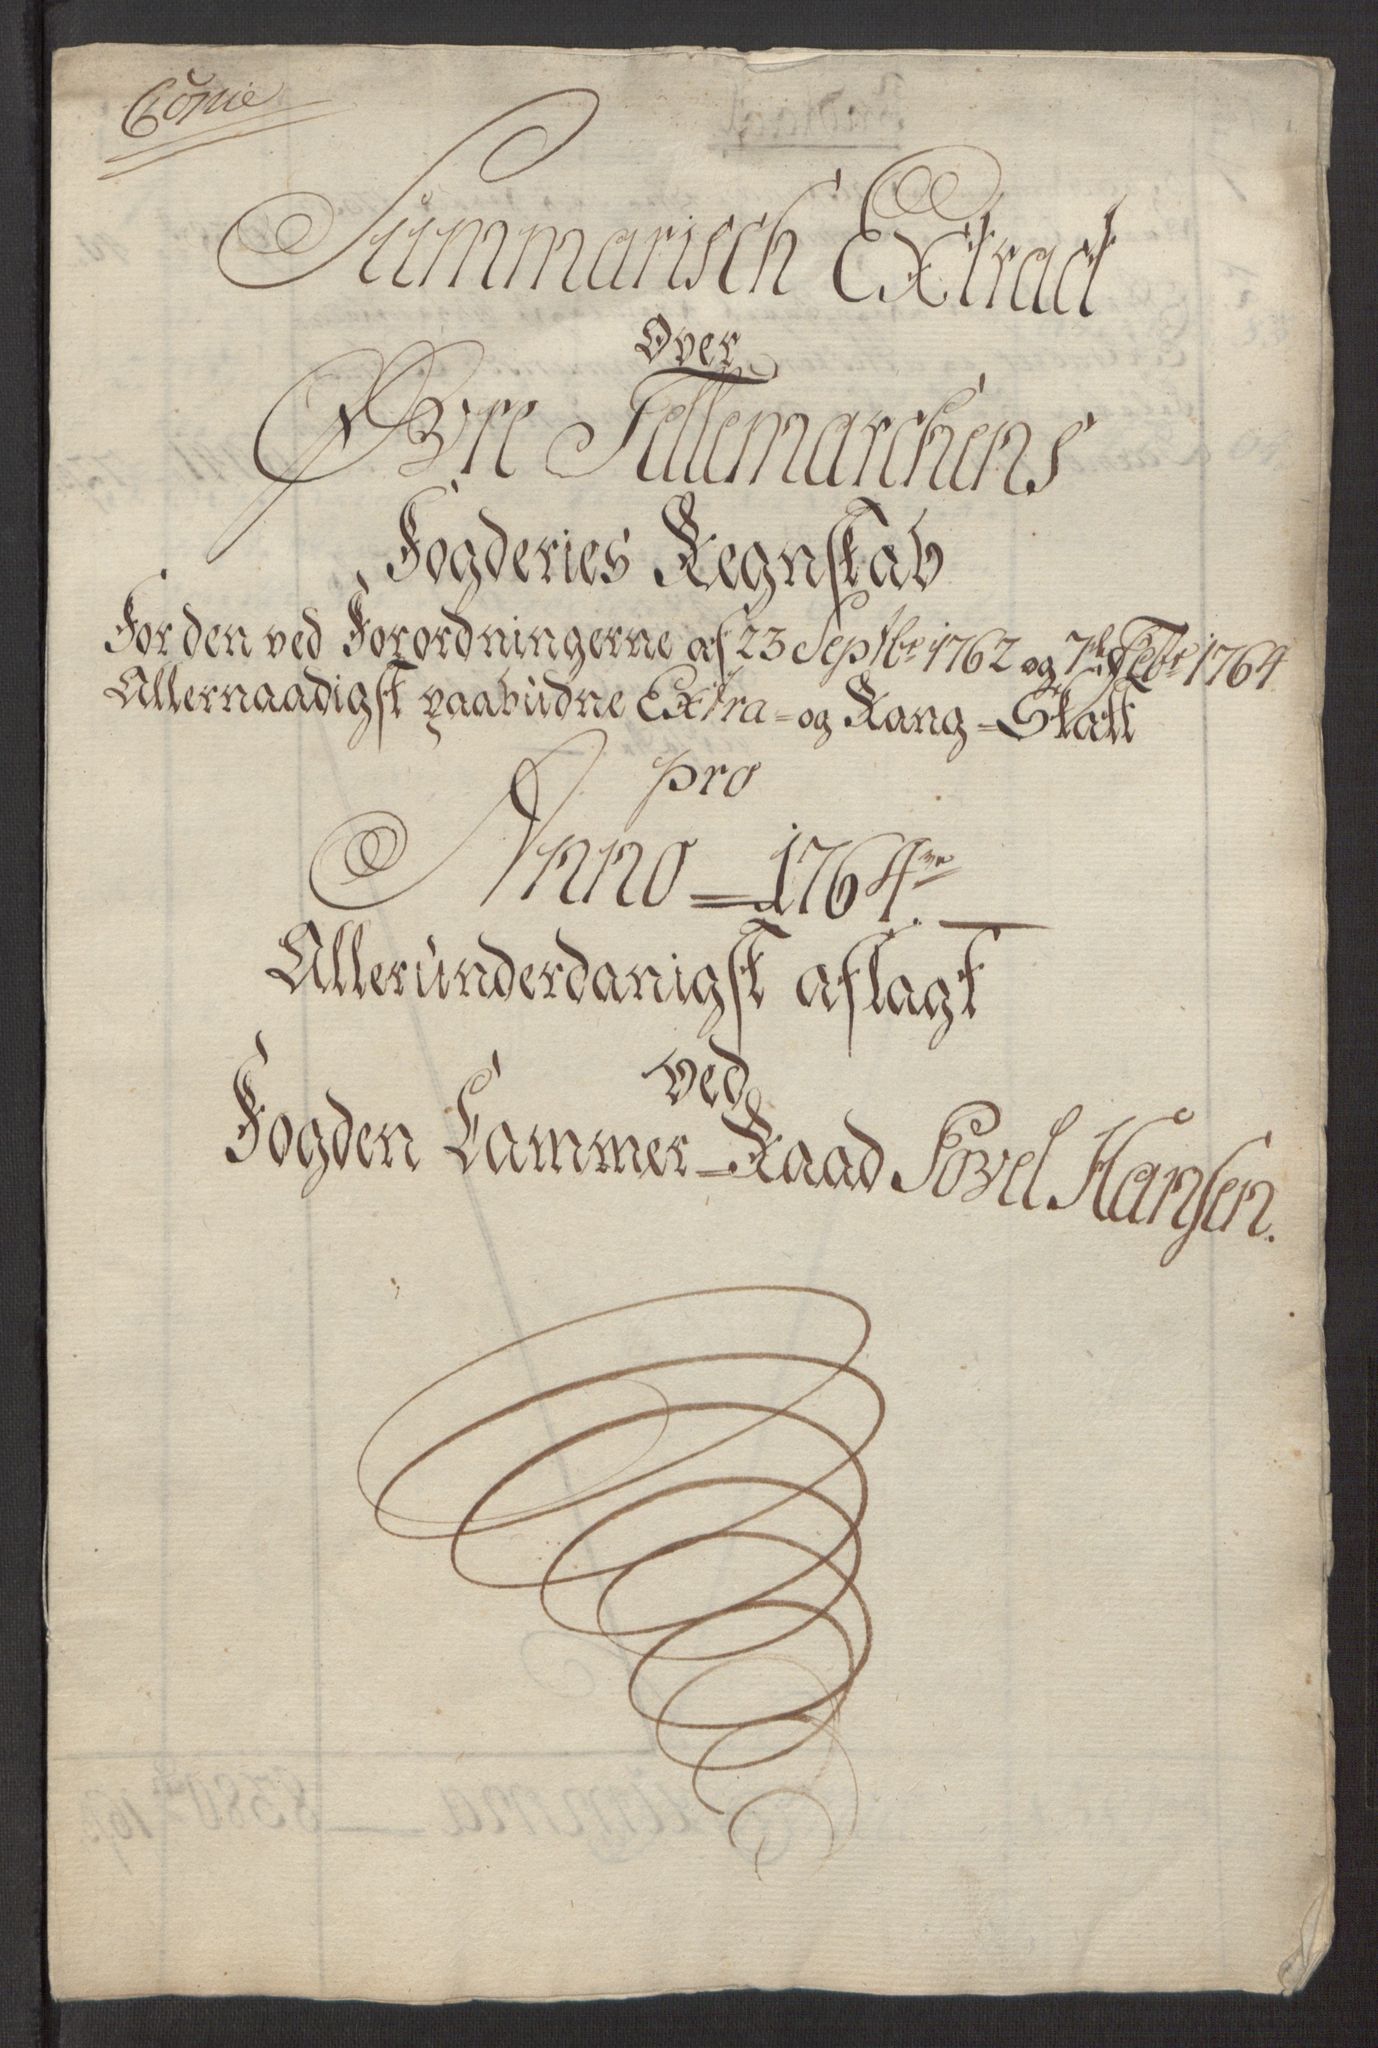 Copie
Summarisch Extract
Over
Øvre Tellemarchens
Fogderies Regnskab
For den ved Forordningerne af 23 Septbr 1762 og 7de Febr 1764
Allernaadigst paabudne Extra- og Rang-Skatt
pro
Anno 1764
Allerunderdanigst aflagt
ved
Fogden Cammer-Raad Povel Hansen.